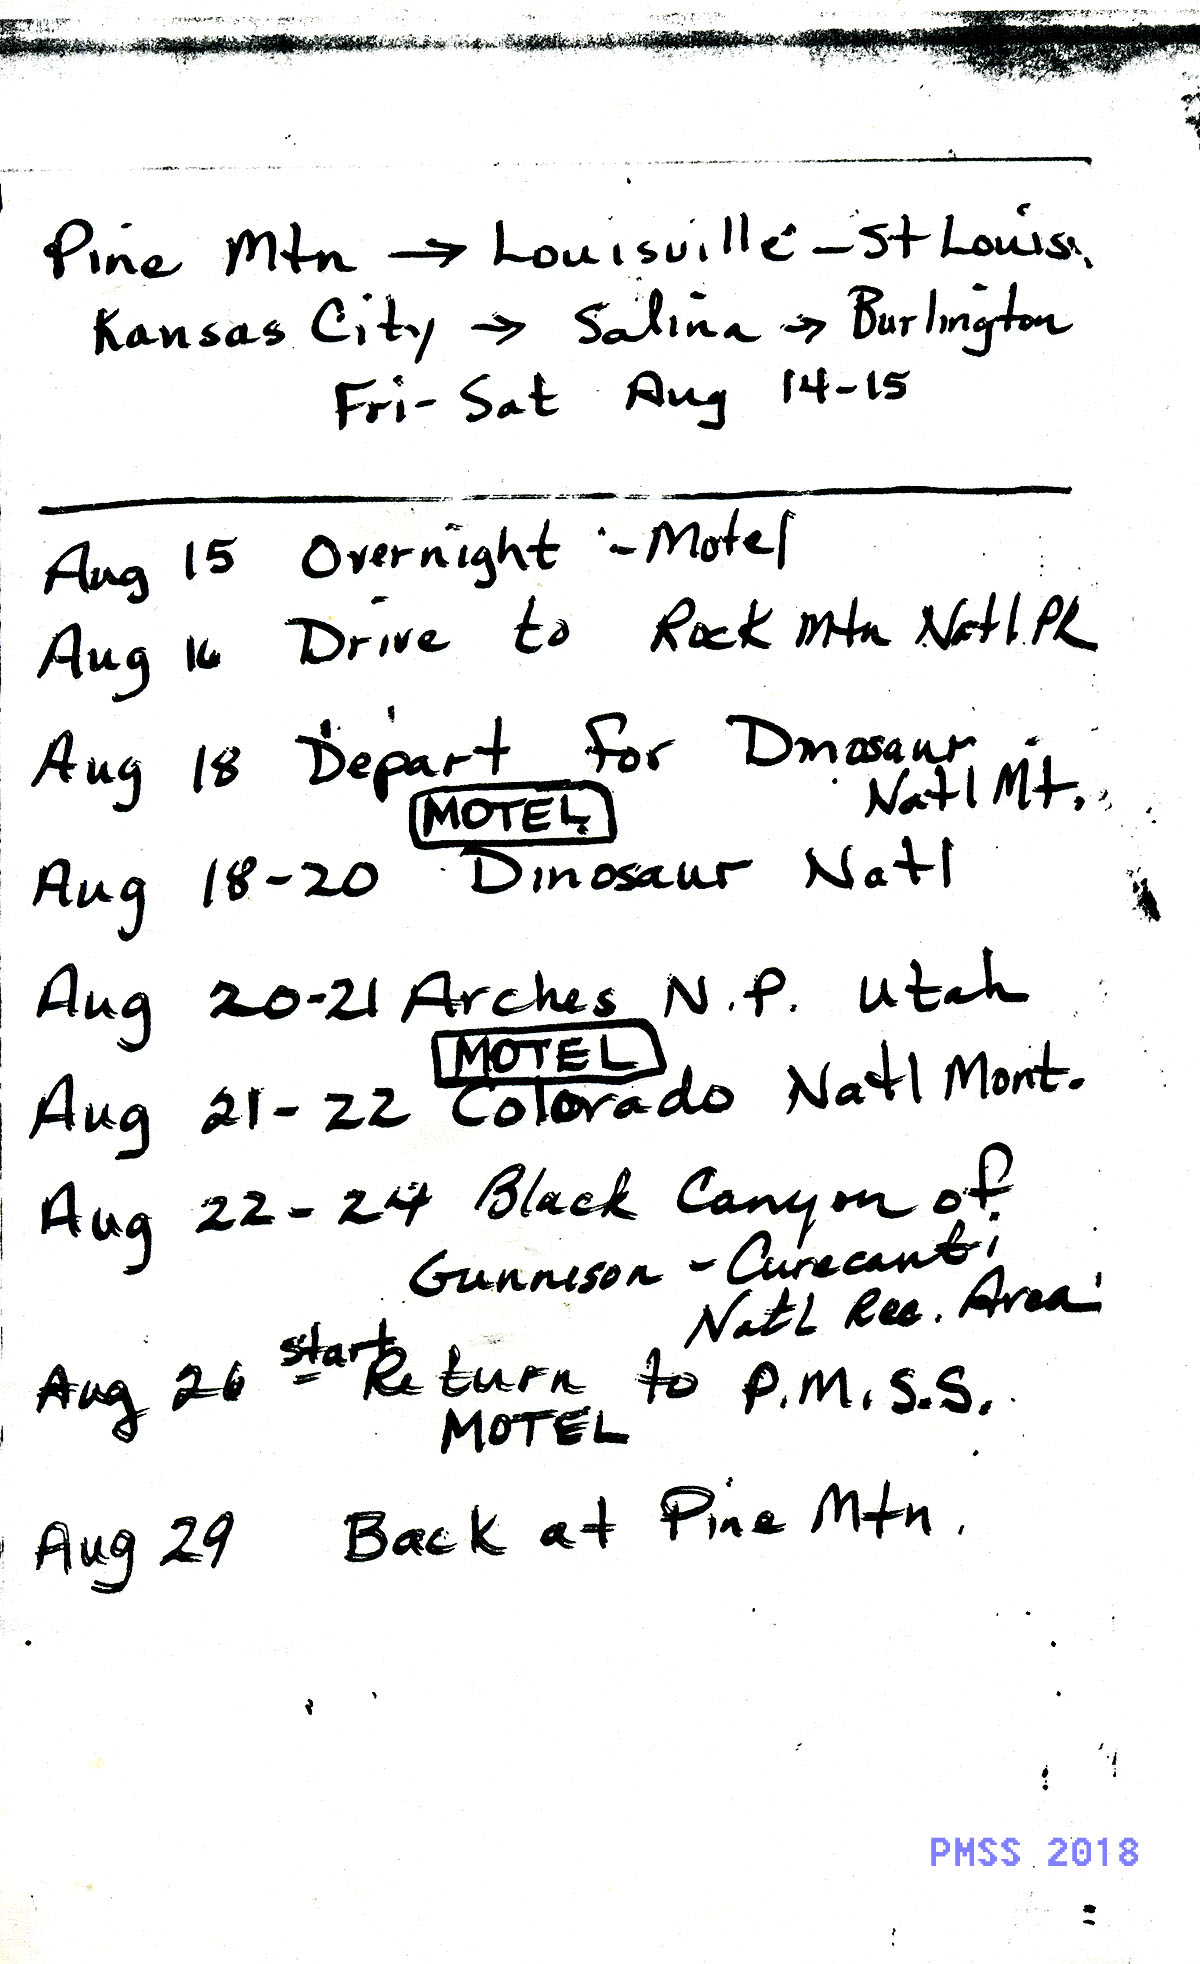 Pine Mtn → Louisville - St Louis.
Kansas City → Salina → Burlington
Fri- Sat Aug 14-15
Aug 15 Overnight - Motel
Aug 16 Drive to Rock Mtn Natl. Pk
Aug 18 Depart for Dinosaur
Natl Mt.
MOTEL
Aug 18-20 Dinosaur Natl
Aug 20-21 Arches N.P. Utah
MOTEL
Aug 21-22 Colorado Natl Mont.
Aug 22-24 Black Canyon of
Gunnison - Curecanti
Natl Rec. Area
Aug 26 start Return to P.M.S.S.
MOTEL
Aug 29 Back at Pine Mtn.
PMSS 2018